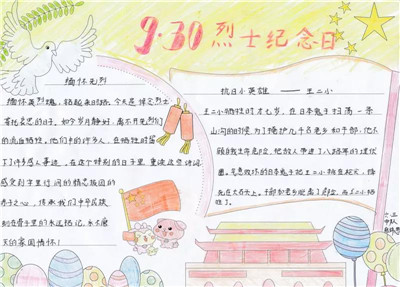 9.30烈士纪念日
缅怀先烈
缅怀英烈魂,
今天是悼念烈士
寄托哀思的日子。如今岁月静好,离不开先烈们
的流血牺牲,他们中的许多人,在牺牲时留
下了许多感人事迹。在这个特别的日子里,重读这些诗词,
感受刻字里行间的精忠报国的
赤子之心,传承我们中华民族
刻在骨子里的永远铭记,永不磨
灭的家国情怀!
抗日小英雄——王二小
王二小牺牲时才七岁,在日本鬼子扫荡一条
山沟的时候,为了掩护几千名老乡和干部,他不
顾自我生命危险,把敌人带进了八路军的埋伏
圈。气急败坏的日本鬼子把王二小挑在枪尖,摔
死在大石头上。干部和老乡脱离了危险,而王二小牺
牲了。
中队